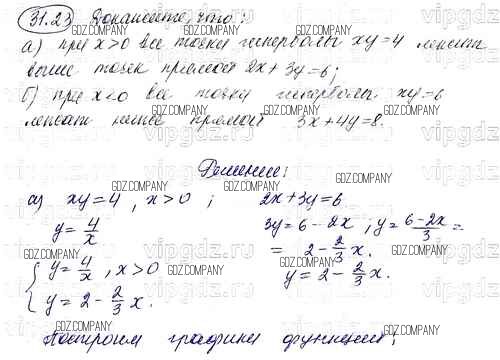 31.23 Докажите, что:
а) при x>0 все точки гиперболы xy=4 лежат
выше точек прямой 2x+3y=6;
б) при x<0 все точки гиперболы xy=6
лежат ниже прямой 3x+4y=8.
Решение:
а) xy=4, x>0; 2x+3y=6
y=4/x 3y=6-2x; y=(6-2x)/3=
= 2-2/3x.
{y=4/x, x>0 y=2-2/3x.
{y=2-2/3x.
Построим графики функций:
GDZ.COMPANY
vipgdz.ru